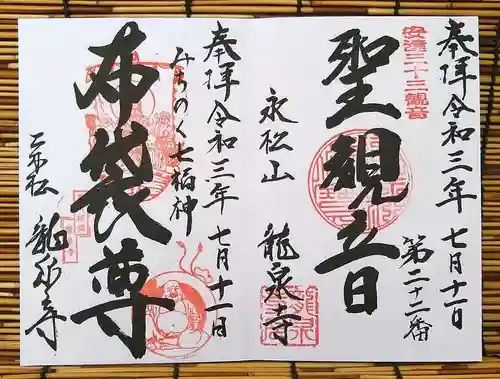 奉拝 令和三年 七月十一日
安達三十三観音
第二十二番
聖観音
永松山
龍泉寺
奉拝 令和三年 七月十一日
みちのく七福神
布袋尊
二本松 龍泉寺